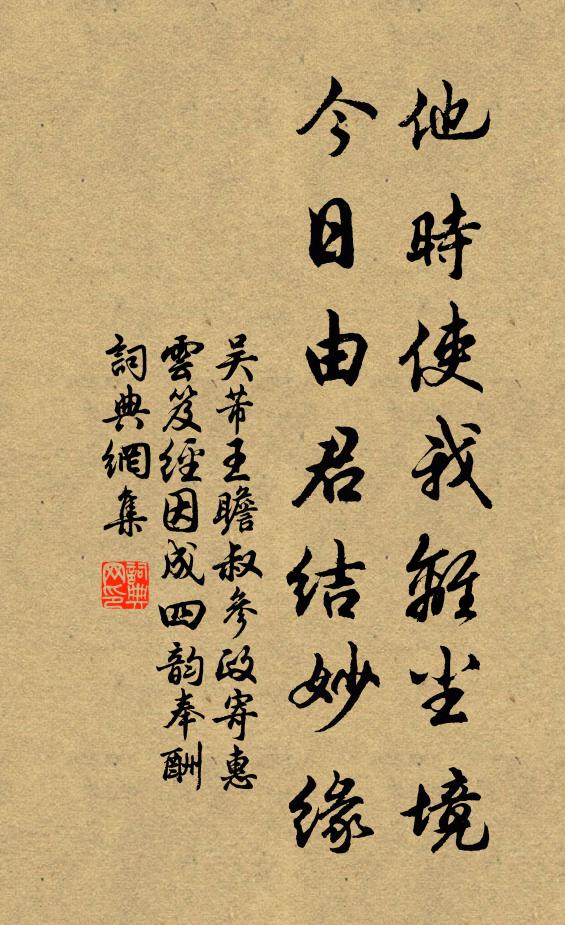 他時使我離尘境
今日由君结妙緣
吴芾王瞻叔參政寄惠
雲笈經因成四韵奉酬
詞典網集
詞典
网印